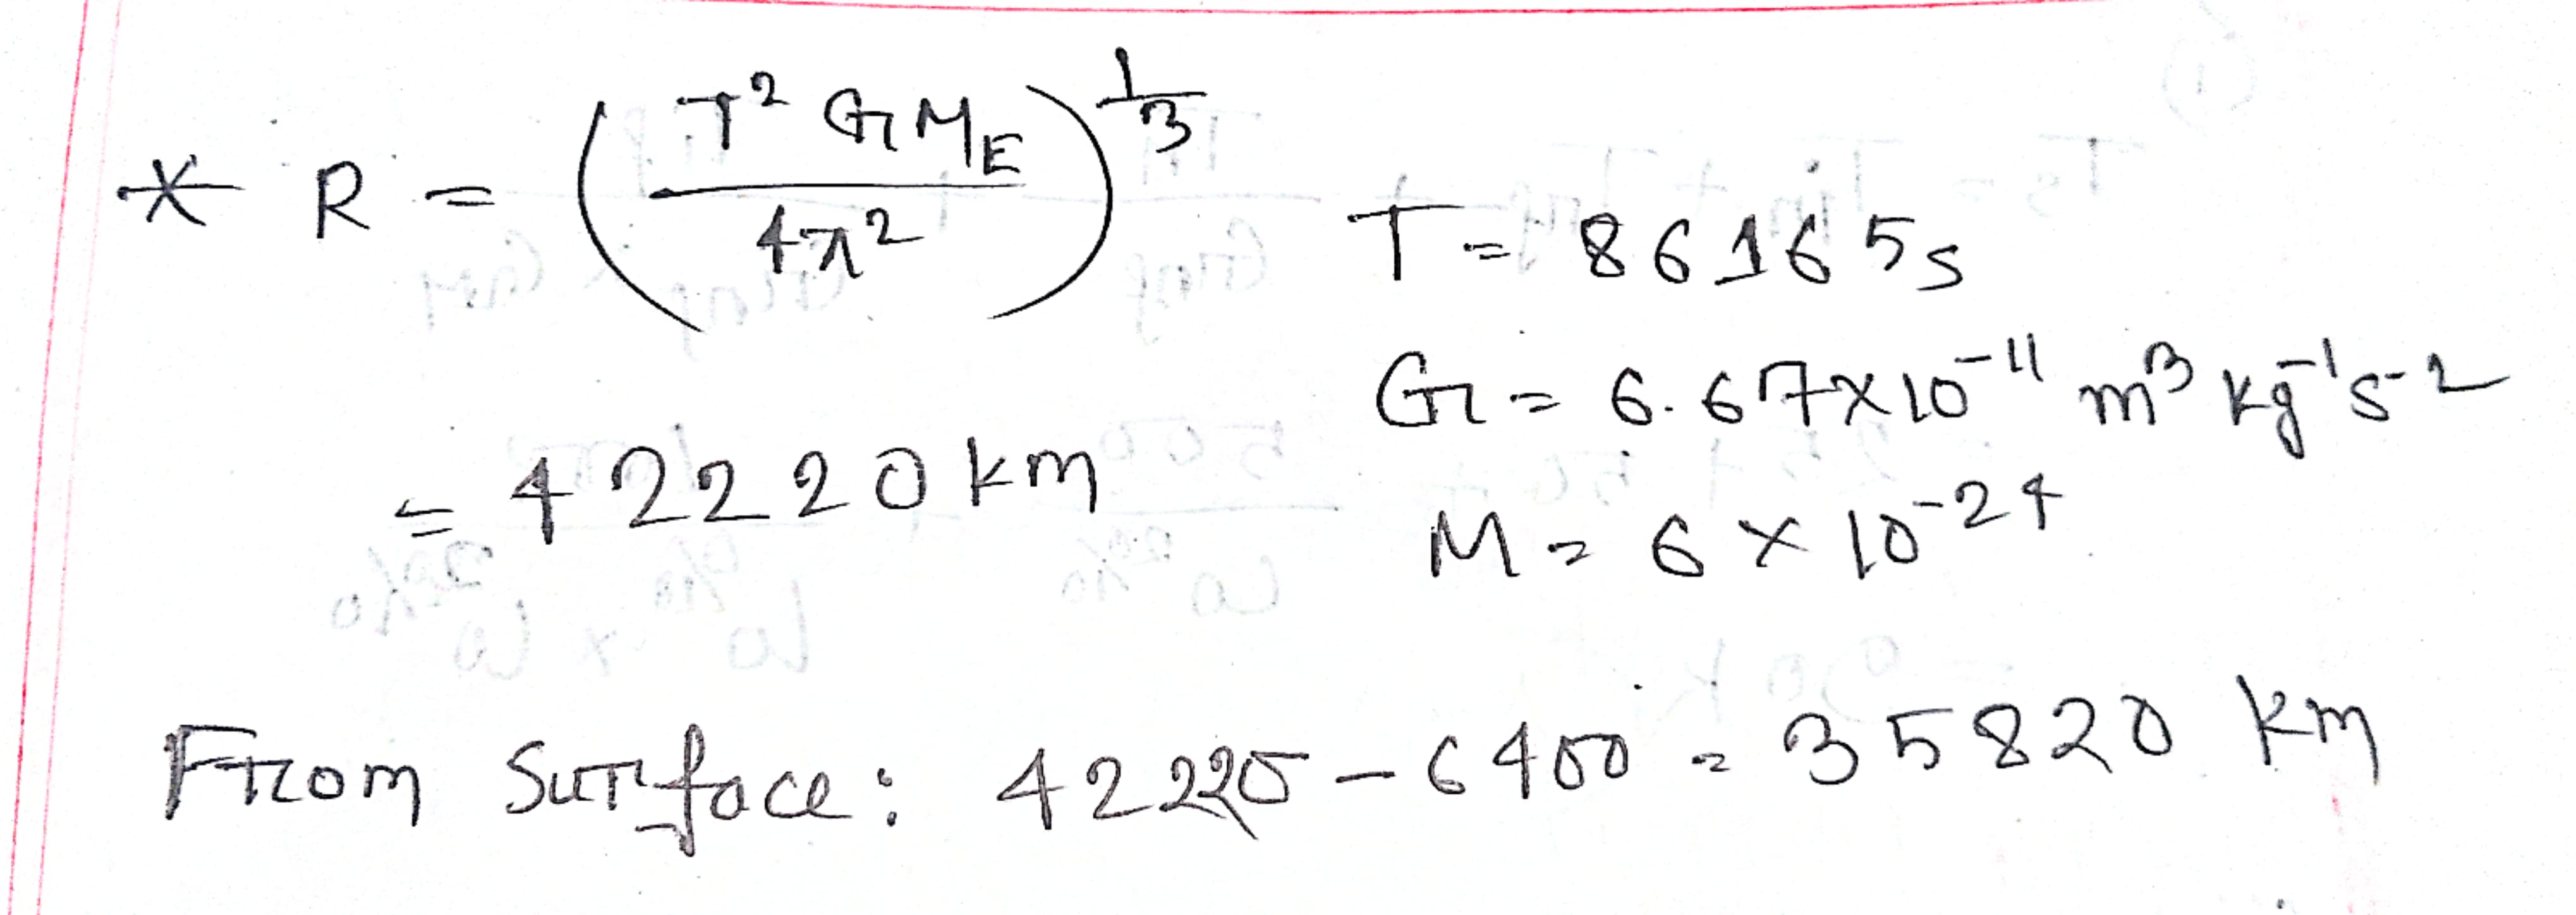 * R = (T² G M_E / 4π²)^(1/3)
T = 86165s
G = 6.67×10⁻¹¹ m³ kg⁻¹ s⁻²
= 42220 km
M = 6 × 10⁻²⁴
From Surface: 42220 - 6400 = 35820 km